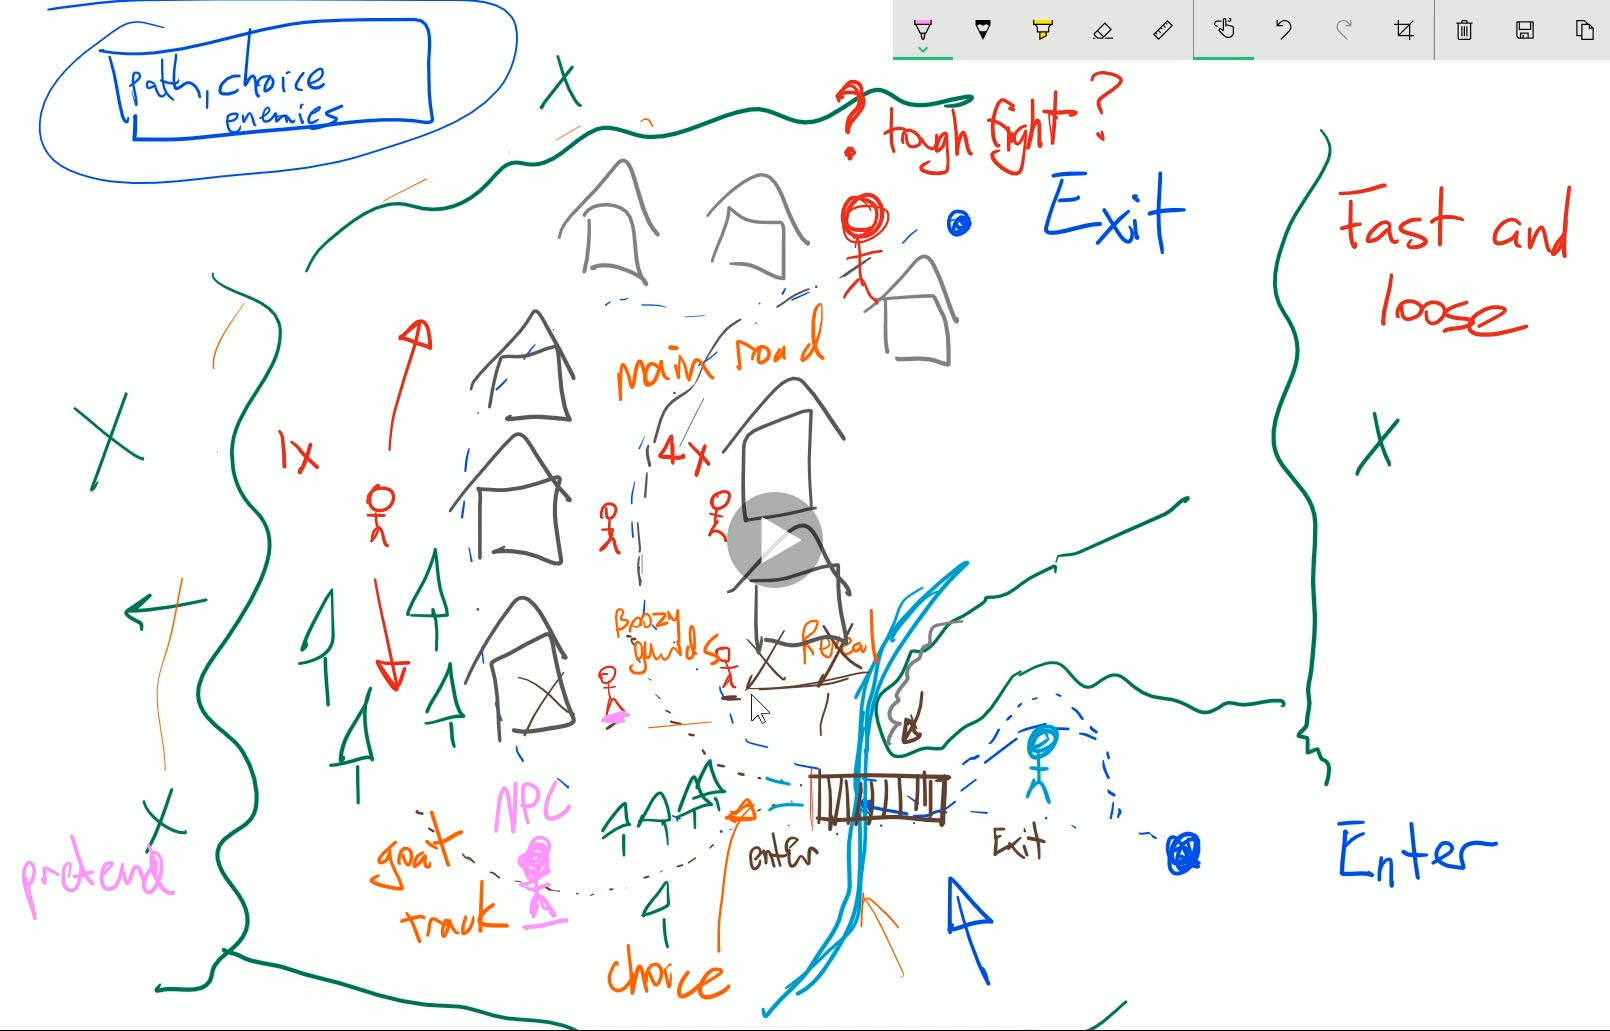 path, choice
enemies
? tough fight?
Exit
Fast and
loose
main road
1x
4x
Boozy
guards
Reveal
NPC
goat
track
enter
Exit
Enter
pretend
choice